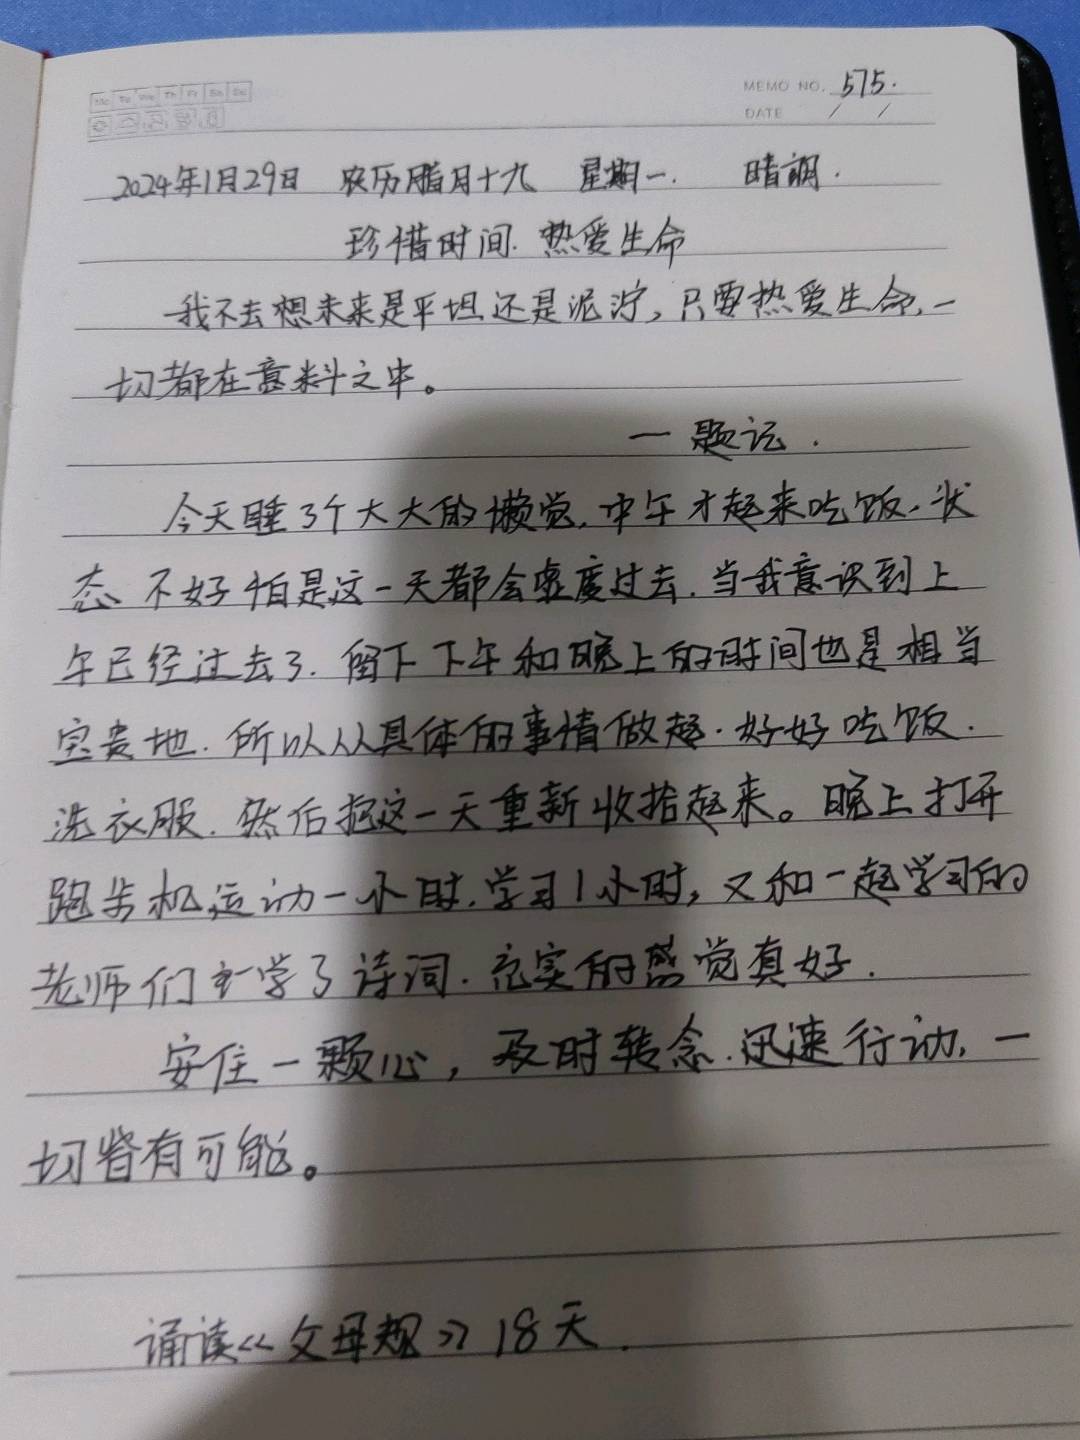 Mo Tu We Th Fr Sa Su
MEMO NO. 575.
DATE / /
2024年1月29日 农历腊月十九 星期一. 晴朗.
珍惜时间.热爱生命
我不去想未来是平坦还是泥泞,只要热爱生命,一
切都在意料之中。
一题记.
今天睡了个大大的懒觉,中午才起来吃饭.状
态不好怕是这一天都会虚度过去.当我意识到上
午已经过去了.留下下午和晚上的时间也是相当
宝贵地.所以从具体的事情做起.好好吃饭.
洗衣服.然后把这一天重新收拾起来。晚上打开
跑步机运动一小时.学习1小时,又和一起学习的
老师们学了诗词.充实的感觉真好.
安住一颗心,及时转念.迅速行动,一
切皆有可能。
诵读《父母规》18天.